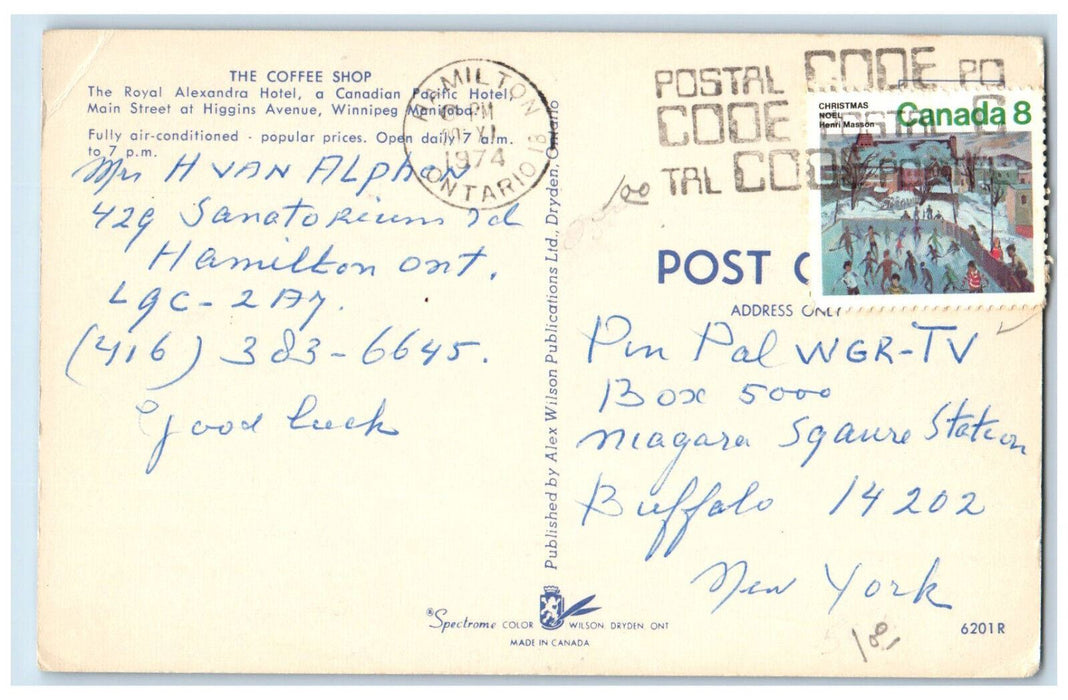 THE COFFEE SHOP
The Royal Alexandra Hotel, a Canadian Pacific Hotel,
Main Street at Higgins Avenue, Winnipeg Manitoba.
Fully air-conditioned - popular prices. Open daily 7 a.m.
to 7 p.m.
Mrs H VAN ALPHEN
429 Sanatorium rd
Hamilton ont.
L9C-2A7.
(416) 383-6645.
Good luck
HAMILTON
PM
XI
1974
ONTARIO 18
Published by Alex Wilson Publications Ltd., Dryden, Ontario
POSTAL CODE PO
CODE POSTAL C
TAL CODE POSTAL
CHRISTMAS
NOËL
Henri Masson
Canada 8
100
POST C
ADDRESS ONLY
Pin Pal WGR-TV
Box 5000
niagara Sqaure Station
Buffalo 14202
New York
®Spectrome COLOR WILSON, DRYDEN, ONT
MADE IN CANADA
6201R
181